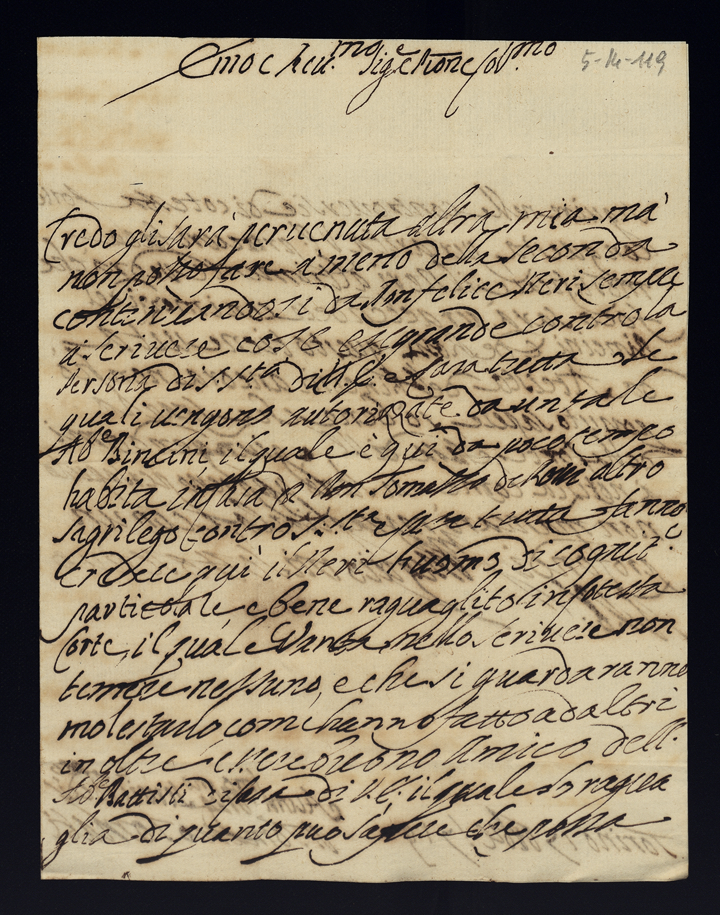 Emo e Reu.mo Sig.e e Prone Col.mo
5-14-119
Credo gli sarà peruenuta altra mia mà
non posso fare à meno della seconda
continuandosi da Infelice Neri sempre
à scriuere cose essgrande contro la
Persona di S. Stà di N. S.e e sua tutta le
quali uengono autorizate da un tale
Ab.e Bincini il quale è qui da poco tempo
habita in Casa di Don Tomasso de altro
sagrilego Contro S. Stà e sua tutta fanno
credere qui il Neri huomo di cognit.e
partiale e bene raguaglito in Cotesta
Corte, il quale Vanta nello scriuere non
temere nessuno, e che si guardaranno
molestarlo come hanno fatto ad altri
in oltre è uno Amico dell
Ab.e Battisti di Casa di il quale lo ragua
glia di quanto può sapere che possa